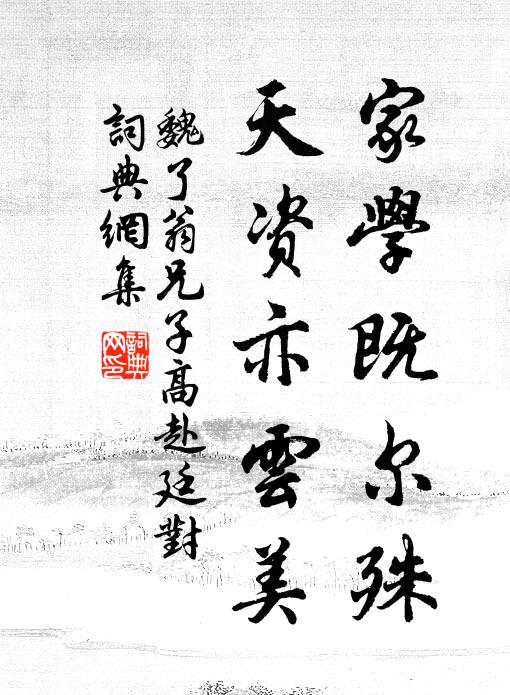 家學既尔殊
天資亦雲美
魏了翁兄子高赴廷對
詞典網集
詞典網印